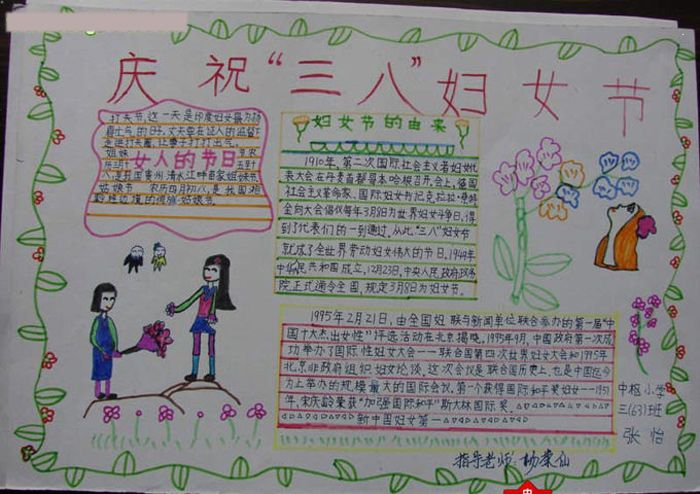 庆祝“三八”妇女节
打夫节,这一天是印度妇女最为扬
眉吐气的日子,丈夫要在证人的监督下
走进打夫篱,让妻子打打出气。
姐妹
女人的节日
八,是我国贵州清水江畔苗家姐妹节
姑娘节 农历四月初八,是我国湘
妇女节的由来
1910年,第二次国际社会主义者妇女代
表大会在丹麦首都哥本哈根召开,会上,德国
社会主义革命家、国际妇女书记克拉拉·
向大会倡仪每年3月8日为世界妇女斗争日,得
到了代表们的一到通过,从此“三八”妇女节
就成了全世界劳动妇女伟大的节日,1949年
中华人民共和国成立,12月23日,中央人民政府政务
院正式通令全国,规定3月8日为妇女节。
1995年2月21日,由全国妇联与新闻单位联合举办的第一届“中
国十大杰出女性”评选活动在北京揭晓,1995年9月,中国政府第一次成
功举办了国际性妇女大会——联合国第四次世界妇女大会和1995年
北京非政府组织妇女论谈,这次会仪是联合国历史上,也是中国迄今
为上举办的规模最大的国际会仪,第一个获得国际和平奖妇女——1951
年,宋庆龄荣获“加强国际和平”斯大林国际奖。
新中国妇女第一
中枢小学
三(63)班
张怡
指导老师:杨荣仙